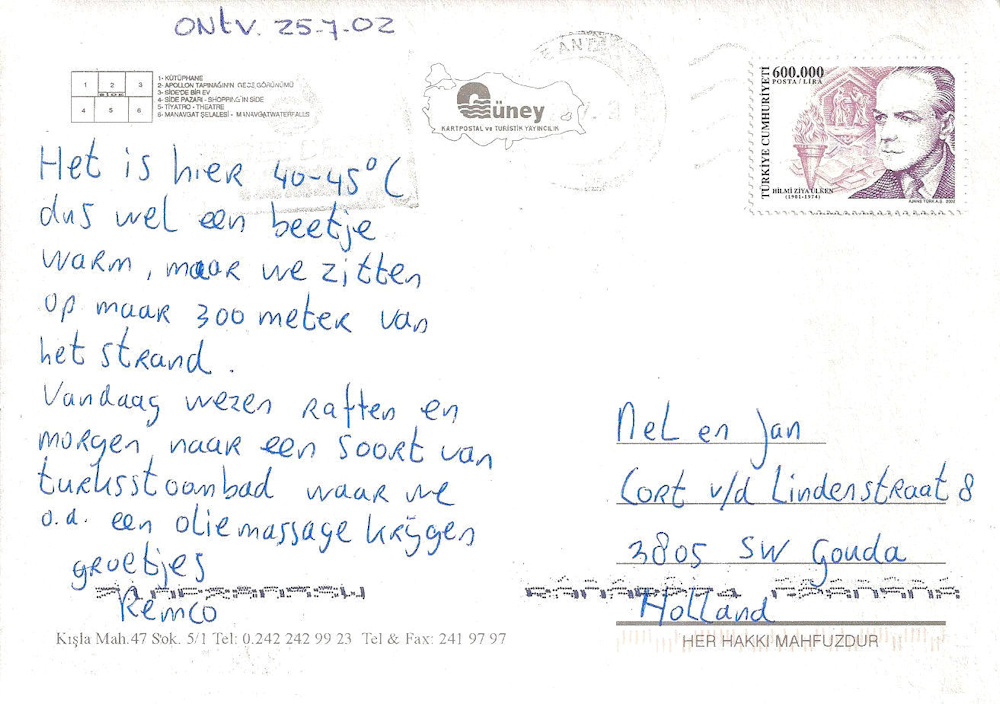 ONtV. 25-7-02
1 2 3
SIDE
4 5 6
1- KÜTÜPHANE
2- APOLLON TAPINAĞININ GECE GÖRÜNÜMÜ
3- SİDE'DE BİR EV
4- SİDE PAZARI - SHOPPING IN SIDE
5- TİYATRO - THEATRE
6- MANAVGAT ŞELALESİ - MANAVGATWATERFALLS
Güney
KARTPOSTAL ve TURİSTİK YAYINCILIK
600.000
POSTA / LİRA
TÜRKİYE CUMHURİYETİ
HİLMİ ZİYA ÜLKEN
(1901-1974)
AJANS TÜRK A.Ş. 2002
Het is hier 40-45°C
dus wel een beetje
warm, maar we zitten
op maar 300 meter van
het strand.
Vandaag wezen raften en
morgen naar een soort van
turksstoombad waar we
o.a. een oliemassage krijgen
groetjes
Remco
Nel en Jan
Cort v/d Lindenstraat 8
3805 SW Gouda
Holland
Kışla Mah.47 Sok. 5/1 Tel: 0.242 242 99 23 Tel & Fax: 241 97 97
HER HAKKI MAHFUZDUR